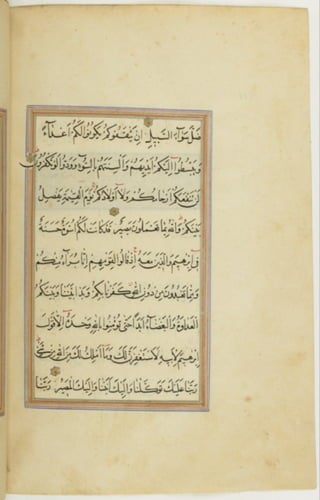 ضَلَّ سَوَاءَ السَّبِيلِ إِنْ يَثْقَفُوكُمْ يَكُونُوا لَكُمْ أَعْدَاءً
وَيَبْسُطُوا إِلَيْكُمْ أَيْدِيَهُمْ وَأَلْسِنَتَهُمْ بِالسُّوءِ وَوَدُّوا لَوْ تَكْفُرُونَ
لَنْ تَنْفَعَكُمْ أَرْحَامُكُمْ وَلَا أَوْلَادُكُمْ يَوْمَ الْقِيٰمَةِ يَفْصِلُ
بَيْنَكُمْ وَاللَّهُ بِمَا تَعْمَلُونَ بَصِيرٌ قَدْ كَانَتْ لَكُمْ أُسْوَةٌ حَسَنَةٌ
فِي إِبْرٰهِيمَ وَالَّذِينَ مَعَهُ إِذْ قَالُوا لِقَوْمِهِمْ إِنَّا بُرَآءُ مِنْكُمْ
وَمِمَّا تَعْبُدُونَ مِنْ دُونِ اللَّهِ كَفَرْنَا بِكُمْ وَبَدَا بَيْنَنَا وَبَيْنَكُمُ
الْعَدَاوَةُ وَالْبَغْضَاءُ أَبَدًا حَتَّى تُؤْمِنُوا بِاللَّهِ وَحْدَهُ إِلَّا قَوْلَ
إِبْرٰهِيمَ لِأَبِيهِ لَأَسْتَغْفِرَنَّ لَكَ وَمَا أَمْلِكُ لَكَ مِنَ اللَّهِ مِنْ شَيْءٍ
رَبَّنَا عَلَيْكَ تَوَكَّلْنَا وَإِلَيْكَ أَنَبْنَا وَإِلَيْكَ الْمَصِيرُ رَبَّنَا